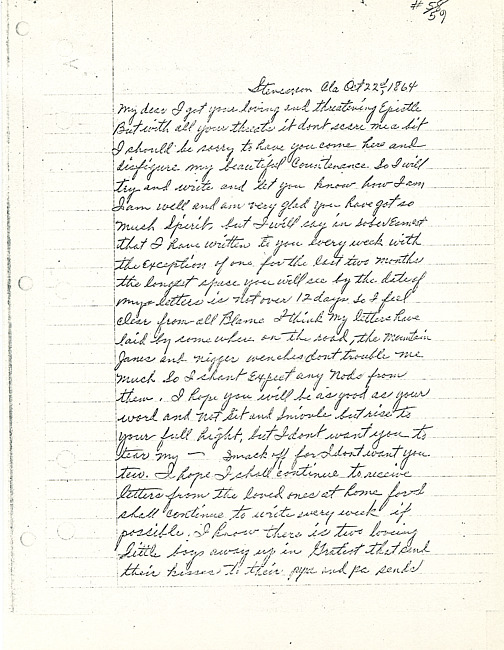 # 58
59
Stevenson Ala Oct 22nd, 1864
My dear I got your loving and threatening Epistle
But with all your threats it dont scare me a bit
I should be sorry to have you come here and
disfigure my beautiful Countenance. So I will
try and write and let you know how I am
I am well and am very glad you have got so
much Spirit, but I will say in sober Earnest
that I have written to you every week with
the exception of one, for the last two months
the longest space you will see by the date of
my letters is not over 12 days So I feel
clear from all Blame I think my letters have
laid by some where on the road, the Mountain
Janes and nigger wenches dont trouble me
much So I shant Expect any Nods from
them. I hope you will be as good as your
word and not Sit and Snivele but rise to
your full hight, but I dont want you to
tear my — smack off for I dont want you
too. I hope I shall continue to receive
letters from the loved ones at home for I
shall continue to write every week if
possible. I know there is two loving
little boys away up in that send
their kisses to their papa and pa sends